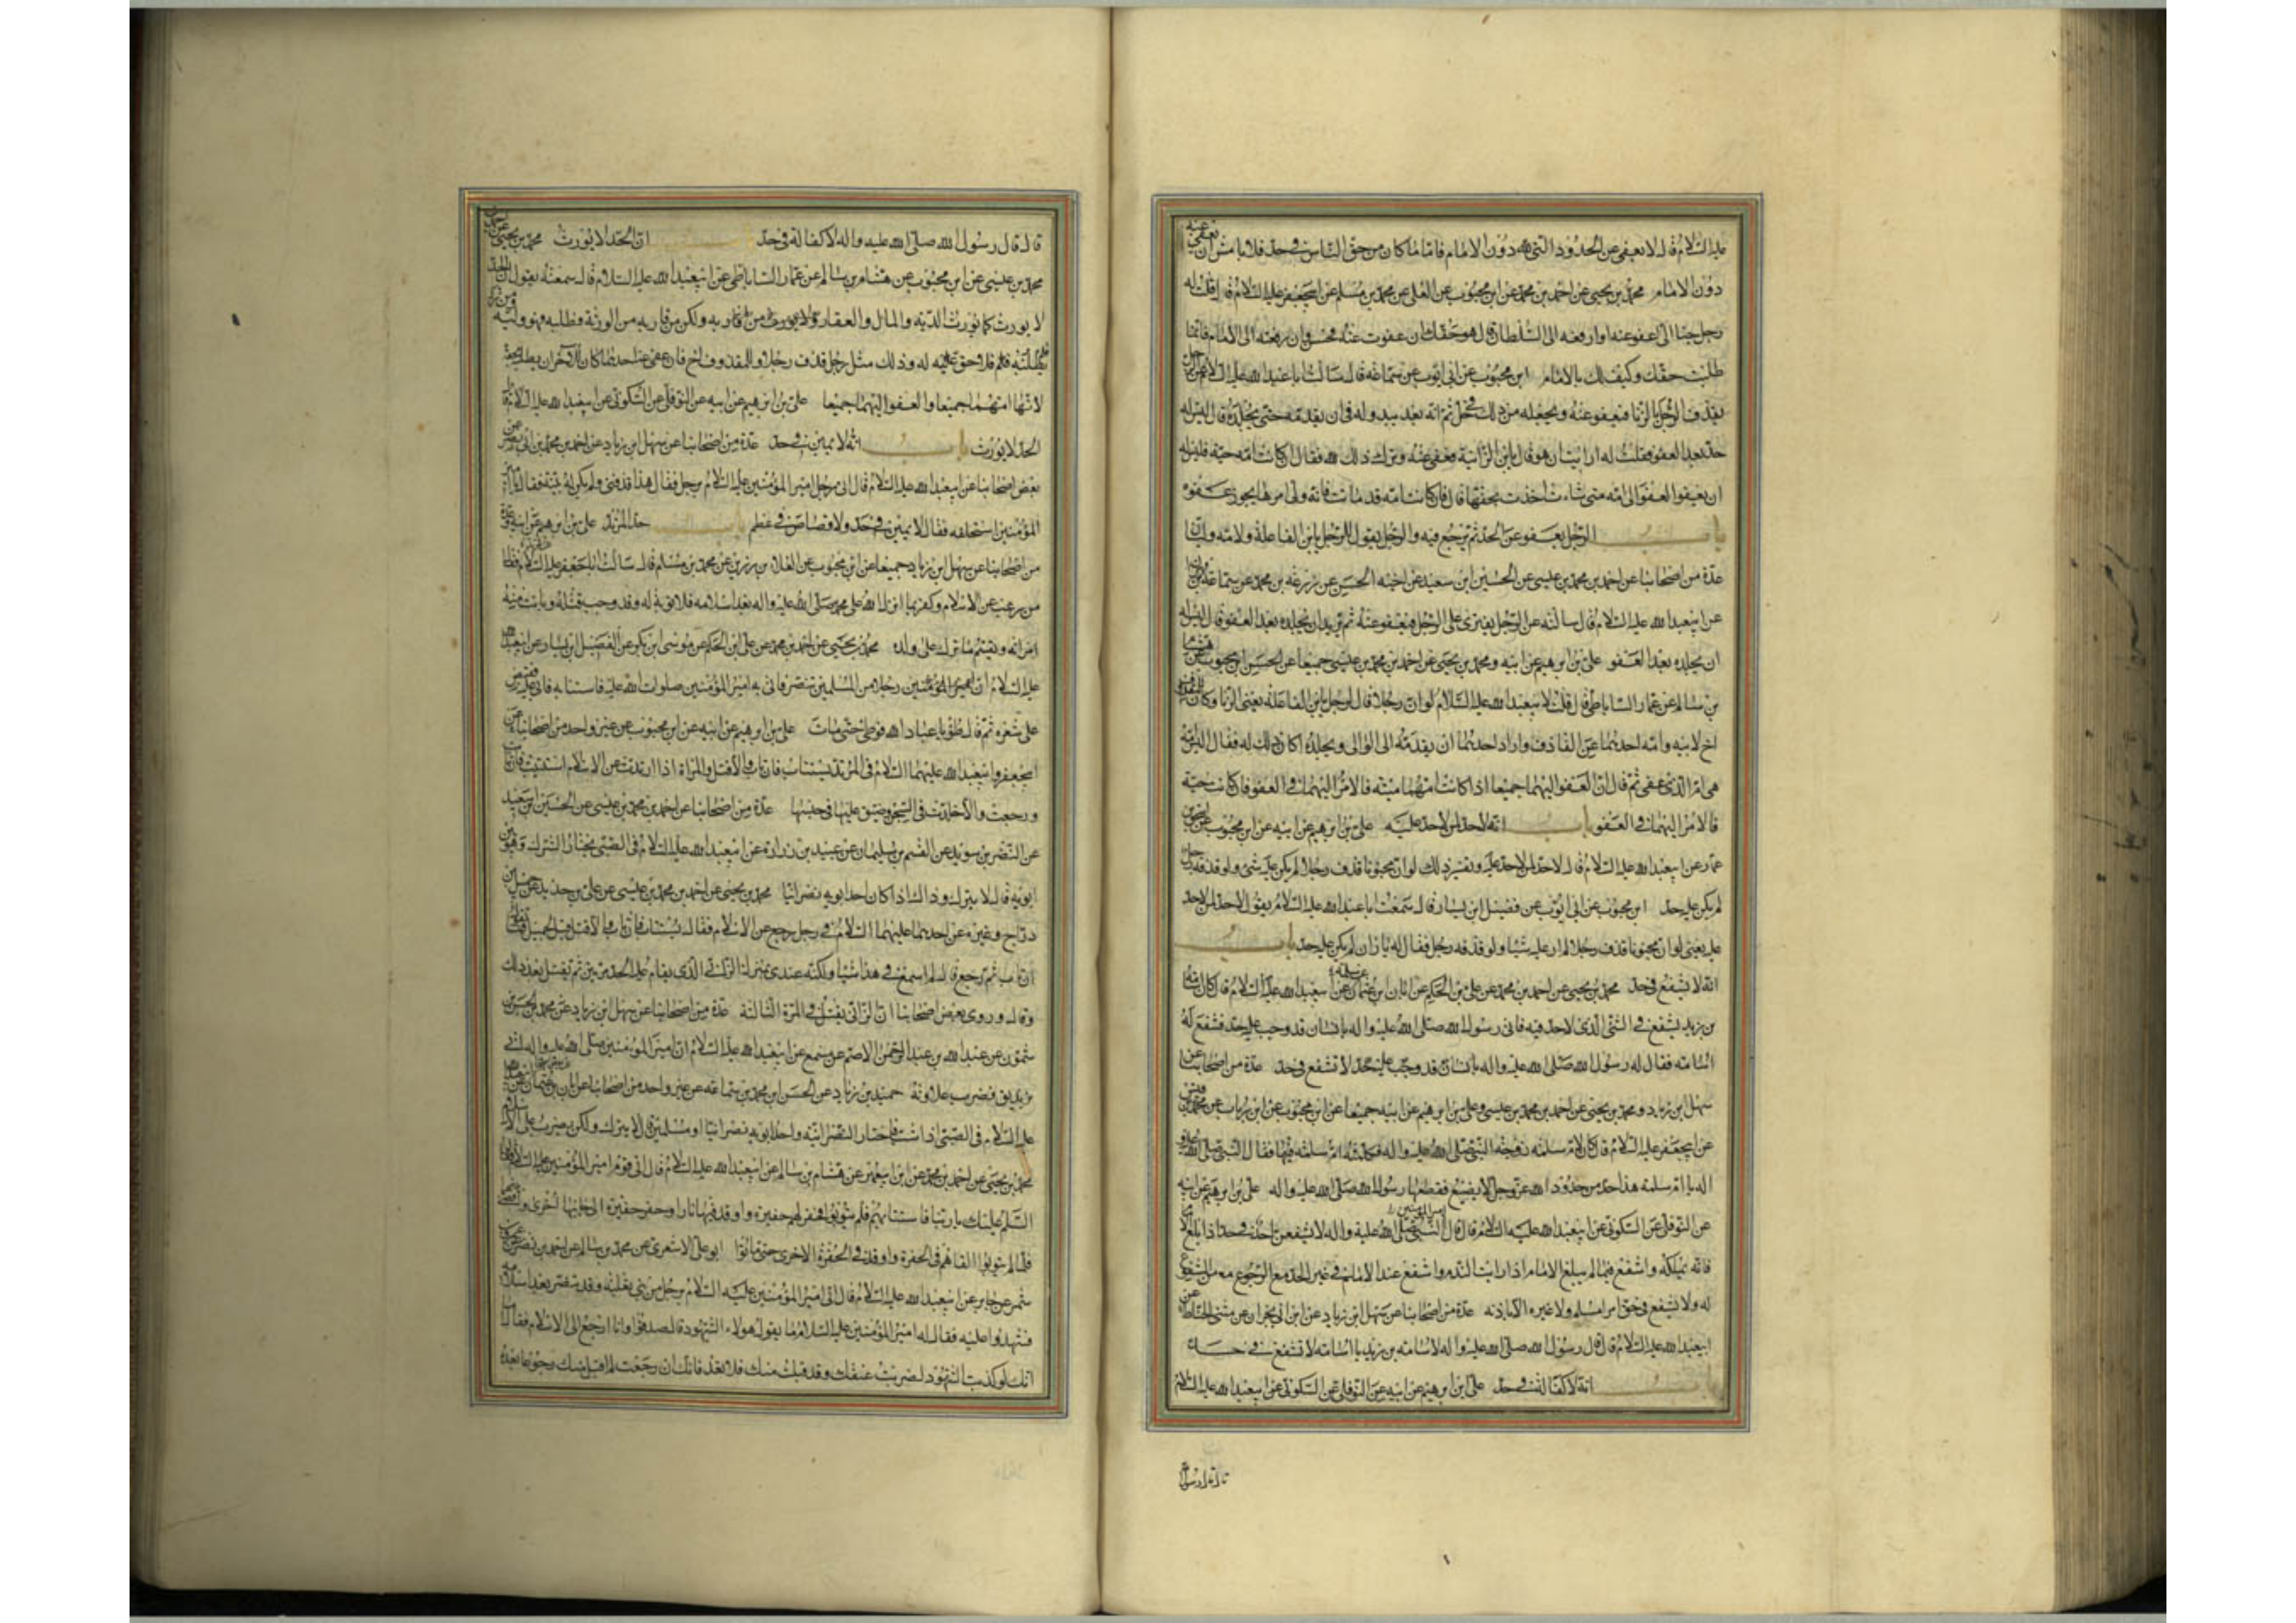 عليه السلام قال لا يعفى عن الحدود التي لله دون الامام فاما ما كان من حق الناس في حد فلا باس ان يعفى عنه
دون الامام محمد بن يحيى عن احمد بن محمد عن ابن محبوب عن العلى عن محمد بن مسلم عن ابيجعفر عليه السلام قال قلت له
رجل جنا الى اعفو عنه او ارفعه الى السلطان قال هو حقك ان عفوت عنه فحسن وان رفعته الى الامام فانما
طلبت حقك وكيف لك بالامام ابن محبوب عن ابى ايوب عن سماعة قال سالت ابا عبدالله عليه السلام عن الرجل
يقذف الرجل بالزنا فيعفو عنه ويجعله من ذلك في حل ثم انه بعد يبدو له في ان يقدمه حتى يجلده قال ليس له
حد بعد العفو فقلت له ارايت ان هو قال يا ابن الزانية فعفى عنه وترك ذلك لله فقال ان كانت امه حية فليس له
ان يعفو العفو الى امه متى شاءت اخذت بحقها قال فان كانت امه قد ماتت فانه ولى امرها يجوز عفوه
باب الرجل يعفو عن الحد ثم يرجع فيه والرجل يقول للرجل يا ابن الفاعلة ولامه وليان
عدة من اصحابنا عن احمد بن محمد بن عيسى عن الحسين ابن سعيد عن اخيه الحسن عن زرعة بن محمد عن سماعة بن مهران
عن ابيعبدالله عليه السلام قال سالته عن الرجل يفترى على الرجل فيعفو عنه ثم يريد ان يجلده بعد العفو قال ليس له
ان يجلده بعد العفو على بن ابرهيم عن ابيه ومحمد بن يحيى عن احمد بن محمد بن عيسى جميعا عن الحسن ابن محبوب عن هشام
بن سالم عن عمار الساباطى قال قلت لابيعبدالله عليه السلام لو ان رجلا قال لرجل يا بن الفاعلة يعنى الزنا وكان للمقذوف
اخ لابيه وامه احدهما عن القاذف واراد احدهما ان يقدمه الى الوالى ويجلده اكان ذلك له فقال اليس امه
هى ام الذى عفى ثم قال ان العفو اليهما جميعا اذا كانت امهما ميتة فالامر اليهما في العفو فان كانت حية
فالامر اليها في العفو باب انه لا حد لمن لا حد عليه على بن ابرهيم عن ابيه عن ابن محبوب عن اسحق بن
عمار عن ابيعبدالله عليه السلام قال لا حد لمن لا حد عليه وتفسير ذلك لو ان مجنونا قذف رجلا لم يكن عليه شئ ولو قذفه رجل
لم يكن عليه حد ابن محبوب عن ابى ايوب عن فضيل ابن يسار قال سمعت ابا عبدالله عليه السلام يقول لا حد لمن لا حد
عليه يعنى لو ان مجنونا قذف رجلا لم ار عليه شيا ولو قذفه رجل فقال له يا زان لم يكن عليه حد باب
انه لا يشفع في حد محمد بن يحيى عن احمد بن محمد عن على بن الحكم عن ابان ابن عثمان عن سلمة عن ابيعبدالله عليه السلام قال كان اسامة
بن زيد يشفع في الشئ الذى لا حد فيه فاتى رسول الله صلى الله عليه واله بانسان قد وجب عليه حد فشفع له
اسامة فقال له رسول الله صلى الله عليه واله لا تشفع في حد عدة من اصحابنا عن
سهل ابن زياد ومحمد بن يحيى عن احمد بن محمد بن عيسى وعلى بن ابرهيم عن ابيه جميعا عن ابن محبوب عن ابن رياب عن محمد بن قيس
عن ابيجعفر عليه السلام قال كان لام سلمة زوجة النبى صلى الله عليه واله امة فكلمته ام سلمة فيها فقال النبى صلى الله عليه و
اله يا ام سلمة هذا حد من حدود الله عز وجل لا يضيع فقطعها رسول الله صلى الله عليه واله على بن ابرهيم عن ابيه
عن النوفلى عن السكونى عن ابيعبدالله عليه السلام قال قال امير المؤمنين لا يشفعن احد في حد اذا بلغ الامام
فانه يملكه واشفع فيما لم يبلغ الامام اذا رايت الندم واشفع عند الامام في غير الحد مع الرجوع من المشفوع
له ولا تشفع في حق امرء مسلم ولا غيره الا باذنه عدة من اصحابنا عن سهل ابن زياد عن ابن ابى نجران عن مثنى الحناط عن
ابيعبدالله عليه السلام قال قال رسول الله صلى الله عليه واله لاسامة بن زيد يا اسامة لا تشفع في حد
باب انه لا كفالة في حد على ابن ابرهيم عن ابيه عن النوفلى عن السكونى عن ابيعبدالله عليه السلام
قال قال رسول
قال قال رسول الله صلى الله عليه واله لا كفالة في حد باب ان الحد لا يورث محمد بن يحيى عن احمد بن
محمد بن عيسى عن ابن محبوب عن هشام بن سالم عن عمار الساباطى عن ابيعبدالله عليه السلام قال سمعته يقول ان الحد
لا يورث كما تورث الدية والمال والعقار ولكن من قام به من الورثة وطلبه فهو وليه ومن تركه
فلم يطلبه فلا حق له وذلك مثل رجل قذف رجلا وللمقذوف اخ فان عفى عنه احدهما كان للاخر ان يطلبه بحقه
لانها امهما جميعا والعفو اليهما جميعا على بن ابرهيم عن ابيه عن النوفلى عن السكونى عن ابيعبدالله عليه السلام قال
الحد لا يورث باب انه لا يمين في حد عدة من اصحابنا عن سهل ابن زياد عن احمد بن محمد بن ابى نصر عن
بعض اصحابنا عن ابيعبدالله عليه السلام قال اتى رجل امير المؤمنين عليه السلام برجل فقال هذا قذفنى ولم يكن له بينة فقال يا امير
المؤمنين استحلفه فقال لا يمين في حد ولا قصاص في عظم باب حد المرتد على بن ابرهيم عن ابيه وعدة
من اصحابنا عن سهل ابن زياد جميعا عن ابن محبوب عن العلاء بن رزين عن محمد بن مسلم قال سالت ابا جعفر عليه السلام عن المرتد فقال
من رغب عن الاسلام وكفر بما انزل الله على محمد صلى الله عليه واله بعد اسلامه فلا توبة له وقد وجب قتله وبانت منه
امراته ويقسم ما ترك على ولده محمد بن يحيى عن احمد بن محمد عن على ابن الحكم عن موسى ابن بكر عن الفضيل ابن يسار عن ابيعبدالله
عليه السلام ان رجلا من المسلمين تنصر فاتى به امير المؤمنين صلوات الله عليه فاستتابه فابى عليه فقبض
على شعره ثم قال طؤا يا عباد الله فوطئ حتى مات على بن ابرهيم عن ابيه عن ابن محبوب عن غير واحد من اصحابنا عن
ابيجعفر وابيعبدالله عليهما السلام في المرتد يستتاب فان تاب والا قتل والمراة اذا ارتدت عن الاسلام استتيبت فان تابت
ورجعت والا خلدت في السجن وضيق عليها في حبسها عدة من اصحابنا عن احمد بن محمد بن عيسى عن الحسين ابن سعيد
عن النضر بن سويد عن القسم بن سليمان عن عبيد بن زرارة عن ابيعبدالله عليه السلام في الصبى يختار الشرك وهو بين
ابويه قال لا يترك وذاك اذا كان احد ابويه نصرانيا محمد بن يحيى عن احمد بن محمد بن عيسى عن على بن حديد عن جميل بن
دراج وغيره عن احدهما عليهما السلام في رجل رجع عن الاسلام فقال يستتاب فان تاب والا قتل قيل لجميل فما تقول
ان تاب ثم رجع قال لم اسمع في هذا شيا ولكنه عندى بمنزلة الزانى الذى يقام عليه الحد مرتين ثم يقتل بعد ذلك
وقال وروى بعض اصحابنا ان الزانى يقتل في المرة الثالثة عدة من اصحابنا عن سهل ابن زياد عن محمد بن الحسن بن
شمون عن عبدالله بن عبد الرحمن الاصم عن مسمع عن ابيعبدالله عليه السلام ان امير المؤمنين صلى الله عليه واله اتى
بزنديق فضرب علاوته حميد بن زياد عن الحسن ابن محمد بن سماعة عن غير واحد من اصحابنا عن ابان بن عثمان عن ابيعبدالله
عليه السلام في الصبى اذا شب فاختار النصرانية واحد ابويه نصرانيا او مسلمين قال لا يترك ولكن يضرب على الاسلام
محمد بن يحيى عن احمد بن محمد عن ابن ابيعمير عن هشام بن سالم عن ابيعبدالله عليه السلام قال اتى قوم امير المؤمنين عليه السلام فقالوا
السلم عليك يا ربنا فاستتابهم فلم يتوبوا فحفر لهم حفيرة واوقد فيها نارا وحفر حفيرة الى جانبها اخرى وافضى بينهما
فلما لم يتوبوا القاهم في الحفرة واوقد في الحفرة الاخرى حتى ماتوا ابو على الاشعرى عن محمد بن سالم عن احمد بن نصر عن عمرو بن
شمر عن جابر عن ابيعبدالله عليه السلام قال اتى امير المؤمنين عليه السلام برجل من بنى ثعلبة وقد تنصر بعد اسلامه
فشهدوا عليه فقال له امير المؤمنين عليه السلام ما يقول هولاء الشهود قال صدقوا وانا ارجع الى الاسلام فقال اما
انك لو كذبت الشهود لضربت عنقك وقد قبلت منك فلا تعد فانك ان رجعت لم اقبل منك رجوعا بعده